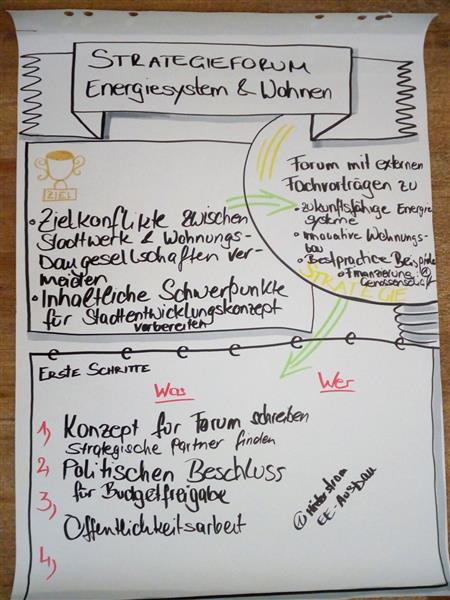 STRATEGIEFORUM
Energiesystem & Wohnen
ZIEL
• Zielkonflikte zwischen
Stadtwerk & Wohnungs-
baugesellschaften ver-
meiden
• Inhaltliche Schwerpunkte
für Stadtentwicklungskonzept
vorbereiten
Forum mit externen
Fachvorträgen zu
• zukunftsfähige Energie
systeme
• Innovative Wohnungs-
bau
• Bestpractice Beispiele
• Finanzierung
Genossenschaft
STRATEGIE
ERSTE SCHRITTE
Was
Wer
1) Konzept für Forum schreiben
strategische Partner finden
2) Politischen Beschluss
für Budgetfreigabe
3)
Öffentlichkeitsarbeit
4)
EE-Ausbau